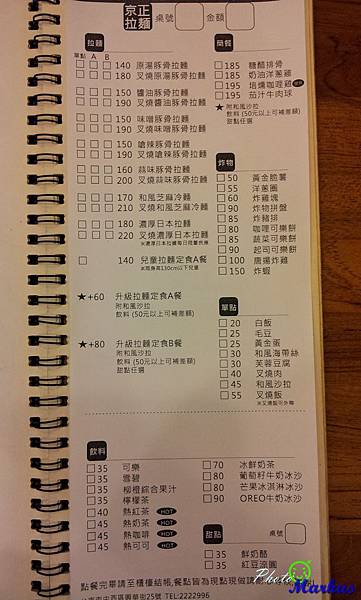 京正拉麵 桌號 金額
拉麵
單點 A B
140 原湯豚骨拉麵
180 叉燒原湯豚骨拉麵
150 醬油豚骨拉麵
190 叉燒醬油豚骨拉麵
150 味噌豚骨拉麵
190 叉燒味噌豚骨拉麵
150 嗆辣豚骨拉麵
190 叉燒嗆辣豚骨拉麵
160 蒜味豚骨拉麵
200 叉燒蒜味豚骨拉麵
170 和風芝麻冷麵
210 叉燒和風芝麻冷麵
180 濃厚日本拉麵
220 叉燒濃厚日本拉麵
※濃厚日本拉麵每日限量供應
140 兒童拉麵定食A餐
※限身高130cm以下兒童
★+60 升級拉麵定食A餐
附和風沙拉
飲料 (50元以上可補差額)
★+80 升級拉麵定食B餐
附和風沙拉
飲料 (50元以上可補差額)
甜點任選
簡餐
185 糖醋排骨
185 奶油洋蔥雞
195 培燻咖哩雞
195 茄汁牛肉球
★附和風沙拉
飲料 (50元以上可補差額)
甜點任選
炸物
50 黃金脆薯
55 洋蔥圈
60 炸雞塊
90 炸物拼盤
85 炸豬排
80 咖哩可樂餅
85 蔬菜可樂餅
90 起司可樂餅
100 唐揚炸雞
150 炸蝦
單點
20 白飯
25 毛豆
25 黃金蛋
30 和風海帶絲
30 芙蓉豆腐
40 叉燒肉
45 和風沙拉
55 叉燒飯
※叉燒飯可外帶
飲料
35 可樂
35 雪碧
35 柳橙綜合果汁
35 檸檬茶
40 熱紅茶 HOT
45 熱奶茶 HOT
45 熱咖啡 HOT
45 熱可可 HOT
70 冰鮮奶茶
80 葡萄籽牛奶冰沙
80 芒果冰淇淋冰沙
90 OREO牛奶冰沙
甜點 桌號
35 鮮奶酪
35 紅豆涼圓
點餐完畢請至櫃檯結帳,餐點皆為現點現做請
中西區國華街25號 TEL:2222996
Photo
Markus